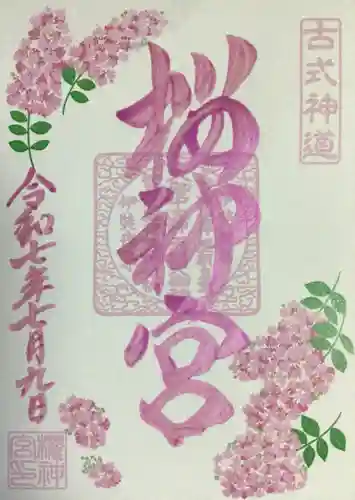 古式神道
桜神宮
令和七年七月九日
櫻神宮印